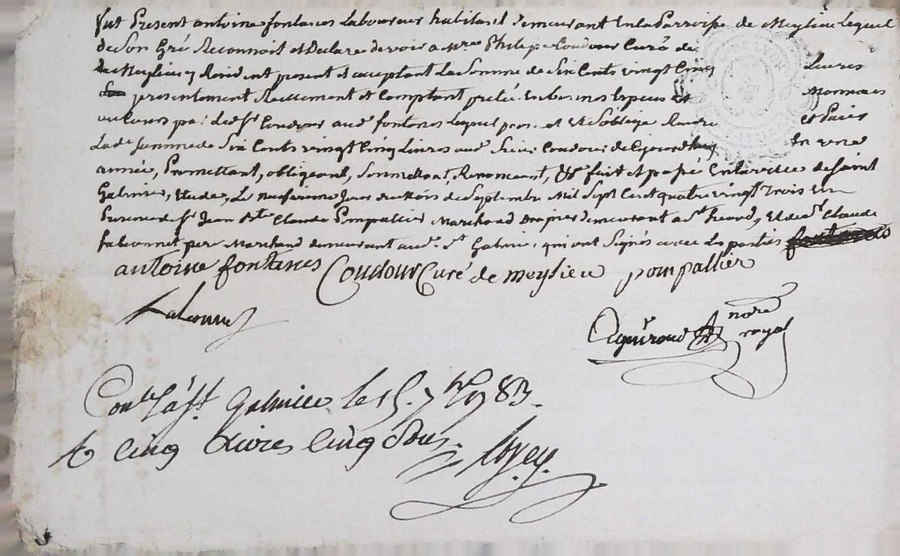 fut Present antoine fontanes Laboureur habitant demeurant En la Parroisse de Meylieu Lequel
de Son Gré Reconnoit et Declare devoir a Mre Philipe Coudour Curé de
Meylieu y Resident present et acceptant La Somme de Six Cents vingt Cinq Livres
presentement Reellement et Comptant prete En bonnes Especes et Monnoies
au Cours par ledit Sr Coudour aud. fontanes Lequel promet et S'oblige Rendre et Paier
Lade Somme de Six Cents vingt Cinq Livres aud. Sieur Coudour de Cejourdhuy En une
année, Promettant, obligeant, Soumettant, Renonceant, &a fait et passé En la ville de Saint
Galmier, Etude, Le neufvieme Jour du Mois de Septembre Mil Sept Cent quatre vingt Trois En
Presence de Sr Jean Bte Claude Pompallier Marchand Drapier demeurant a St heand, Et de Sr Claude
falconnet Marchand demeurant aud. St Galmier qui ont Signés avec Les parties
antoine fontanes Coudour Curé de meylieu pompallier
falconnet
notre
royal
Conlé à St Galmier le 15. 7bre 1783.
R cinq Livres Cinq Sous.